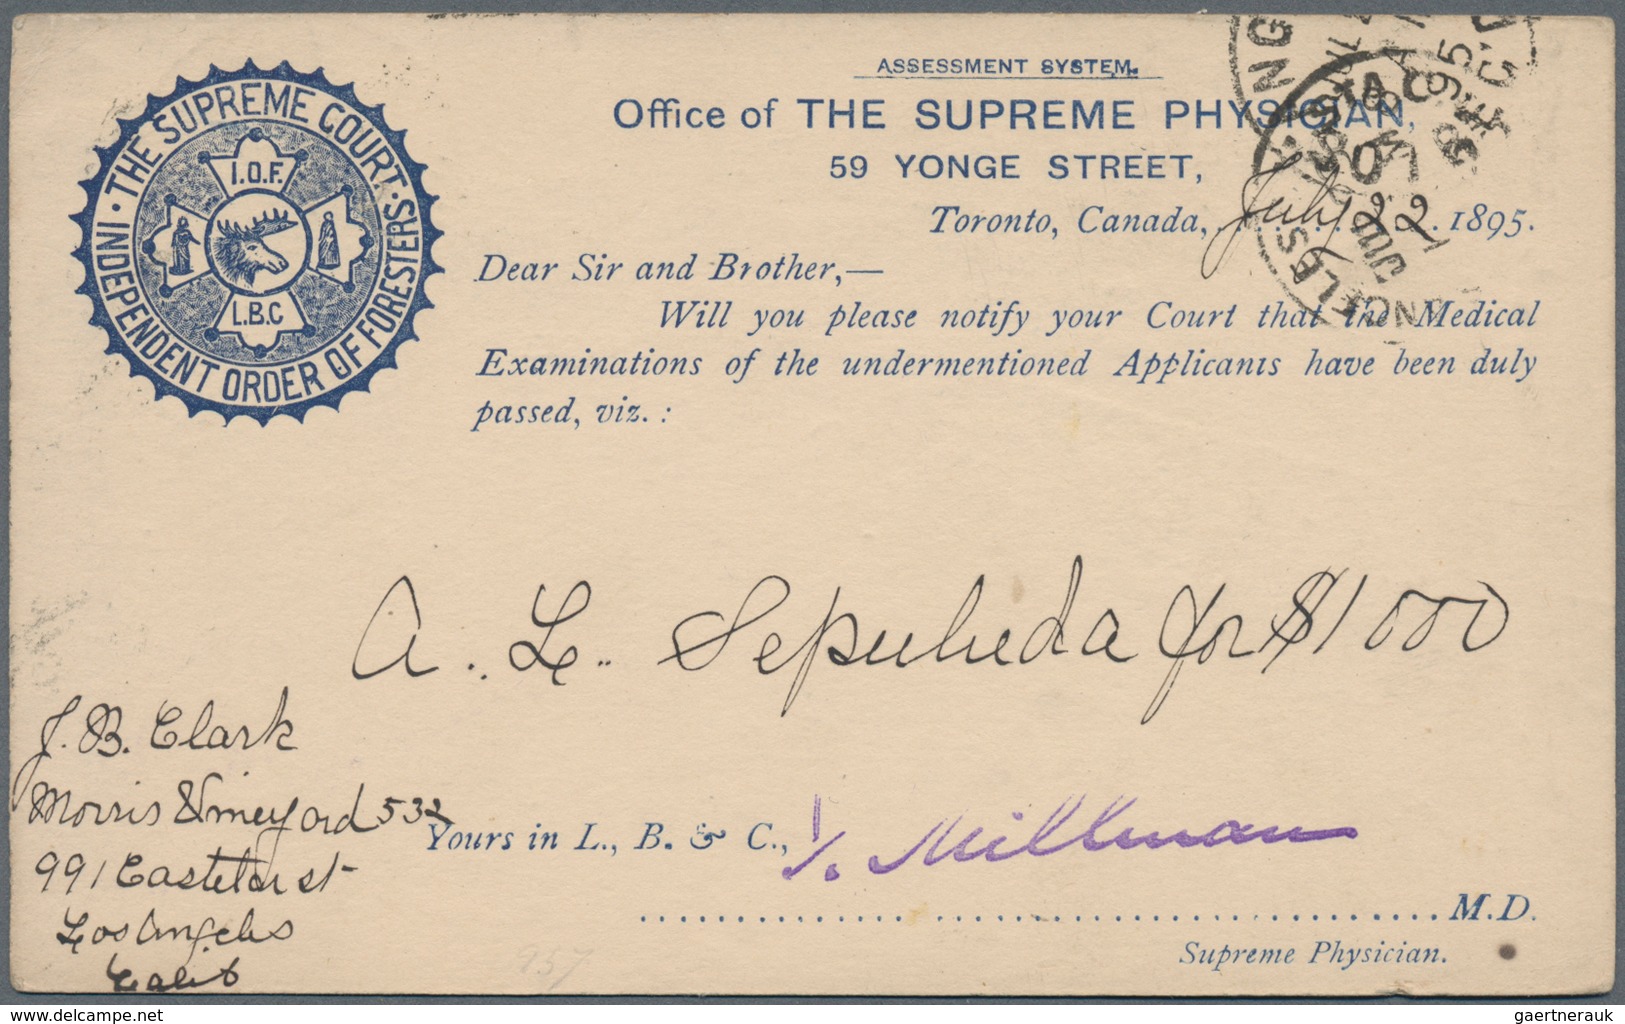 THE SUPREME COURT · INDEPENDENT ORDER OF FORESTERS ·
I.O.F.
L.B.C
ASSESSMENT SYSTEM.
Office of THE SUPREME PHYSICIAN,
59 YONGE STREET,
Toronto, Canada, July 22 1895.
Dear Sir and Brother,—
Will you please notify your Court that the Medical
Examinations of the undermentioned Applicants have been duly
passed, viz. :
A. L. Sepulveda for $1000
J. B. Clark
Morris Vineyard 532
991 St
Los Angeles
Calif
Yours in L., B. & C., Millman
M.D.
Supreme Physician.
957
gaertnerauk
www.delcampe.net